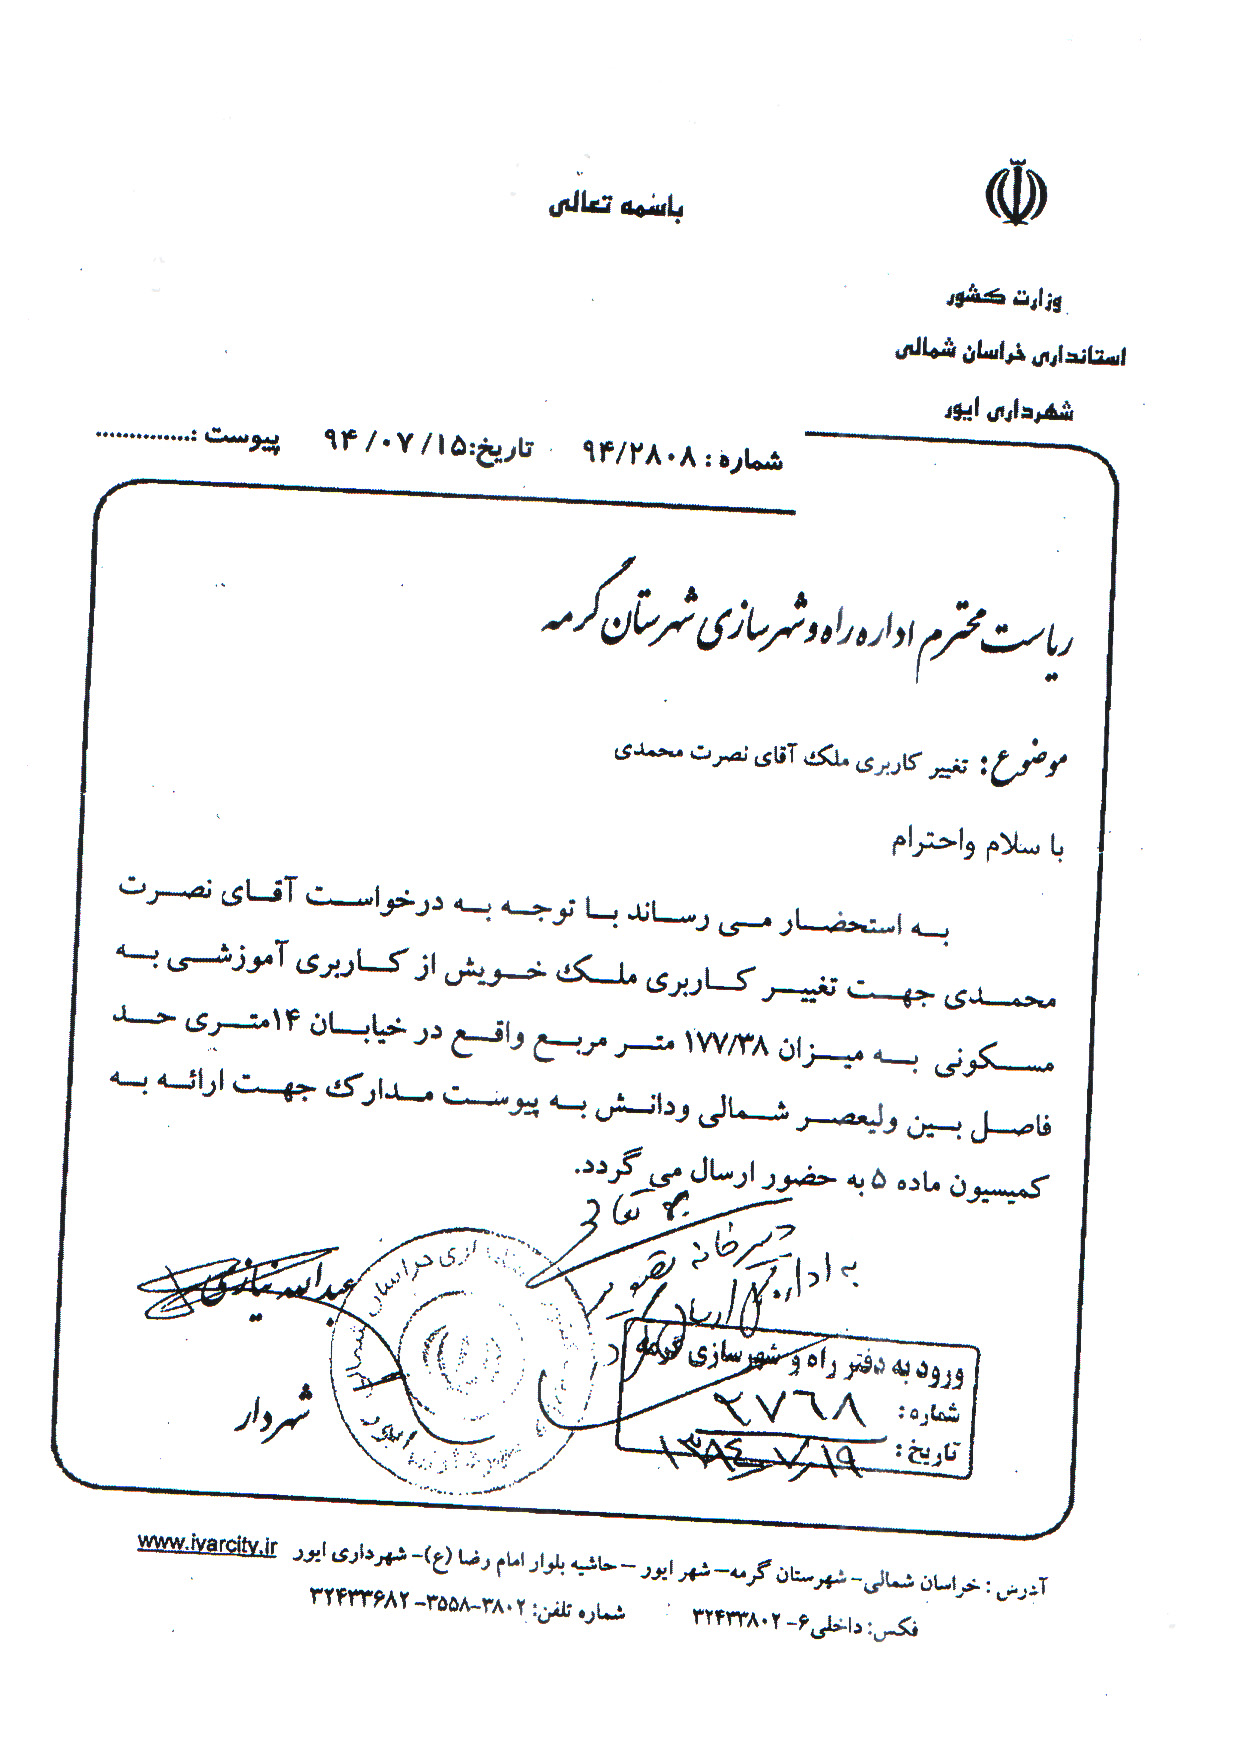 باسمه تعالی
وزارت کشور
استانداری خراسان شمالی
شهرداری ایور
شماره : ۹۴/۲۸۰۸ تاریخ:۹۴/۰۷/۱۵ پیوست :..............
ریاست محترم اداره راه و شهرسازی شهرستان گرمه
موضوع : تغییر کاربری ملک آقای نصرت محمدی
با سلام واحترام
به استحضار می رساند با توجه به درخواست آقای نصرت
محمدی جهت تغییر کاربری ملک خویش از کاربری آموزشی به
مسکونی به میزان ۱۷۷/۳۸ متر مربع واقع در خیابان ۱۴متری حد
فاصل بین ولیعصر شمالی ودانش به پیوست مدارک جهت ارائه به
کمیسیون ماده ۵ به حضور ارسال می گردد.
عبدالله نیازی
شهردار
ورود به دفتر راه و شهرسازی گرمه
شماره: ۲۷۶۸
تاریخ: ۱۳۹۴/۷/۱۹
آدرس : خراسان شمالی- شهرستان گرمه- شهر ایور – حاشیه بلوار امام رضا (ع)- شهرداری ایور www.iyarcity.ir
فکس: داخلی ۶- ۳۲۴۳۳۸۰۲ شماره تلفن: ۳۸۰۲-۳۵۵۸- ۳۲۴۳۳۶۸۲